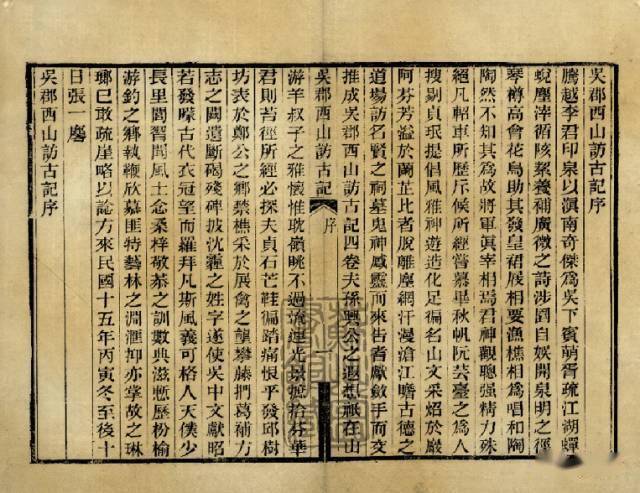 吳郡西山訪古記序
騰越李君印泉以滇南奇傑為吳下賓萌脅疏江湖蟬
蛻塵滓循陔絜養補廣微之詩涉園自娛開泉明之徑
琴樽高會花鳥助其發皇裙屐相要漁樵相為唱和陶
陶然不知其為故將軍眞宰相焉君神觀聰强精力殊
絕凡軺車所歷斥候所經嘗慕畢秋帆阮芸臺之為人
搜剔貞珉提倡風雅神遊造化足徧名山文采焰於巖
阿芬芳溢於蘭芷比者脫離塵網汗漫滄江瞻古德之
道場訪名賢之祠墓鬼神感靈而來告者獻斂手而交
推成吳郡西山訪古記四卷夫孫興公之遐想祇在山
吳郡西山訪古記
序
游羊叔子之雅懷惟耽嶺眺不過流連光景摭拾芬華
君則苦徑所經必探夫貞石芒鞋徧踏痛恨乎發邱樹
坊表於鄭公之鄉禁樵采於展禽之壟攀藤捫葛補方
志之闕遺斷碣殘碑披沈薶之姓字遂使吳中文獻昭
若發矇古代衣冠望而羅拜凡斯風義可格人天僕少
長里閈習聞風土念桑梓敬恭之訓數典滋慙歷枌榆
游釣之鄉執鞭欣慕匪特藝林之淵滙抑亦掌故之琳
瑯已敢疏崖略以諗方來民國十五年丙寅冬至後十
日張一麐
吳郡西山訪古記序